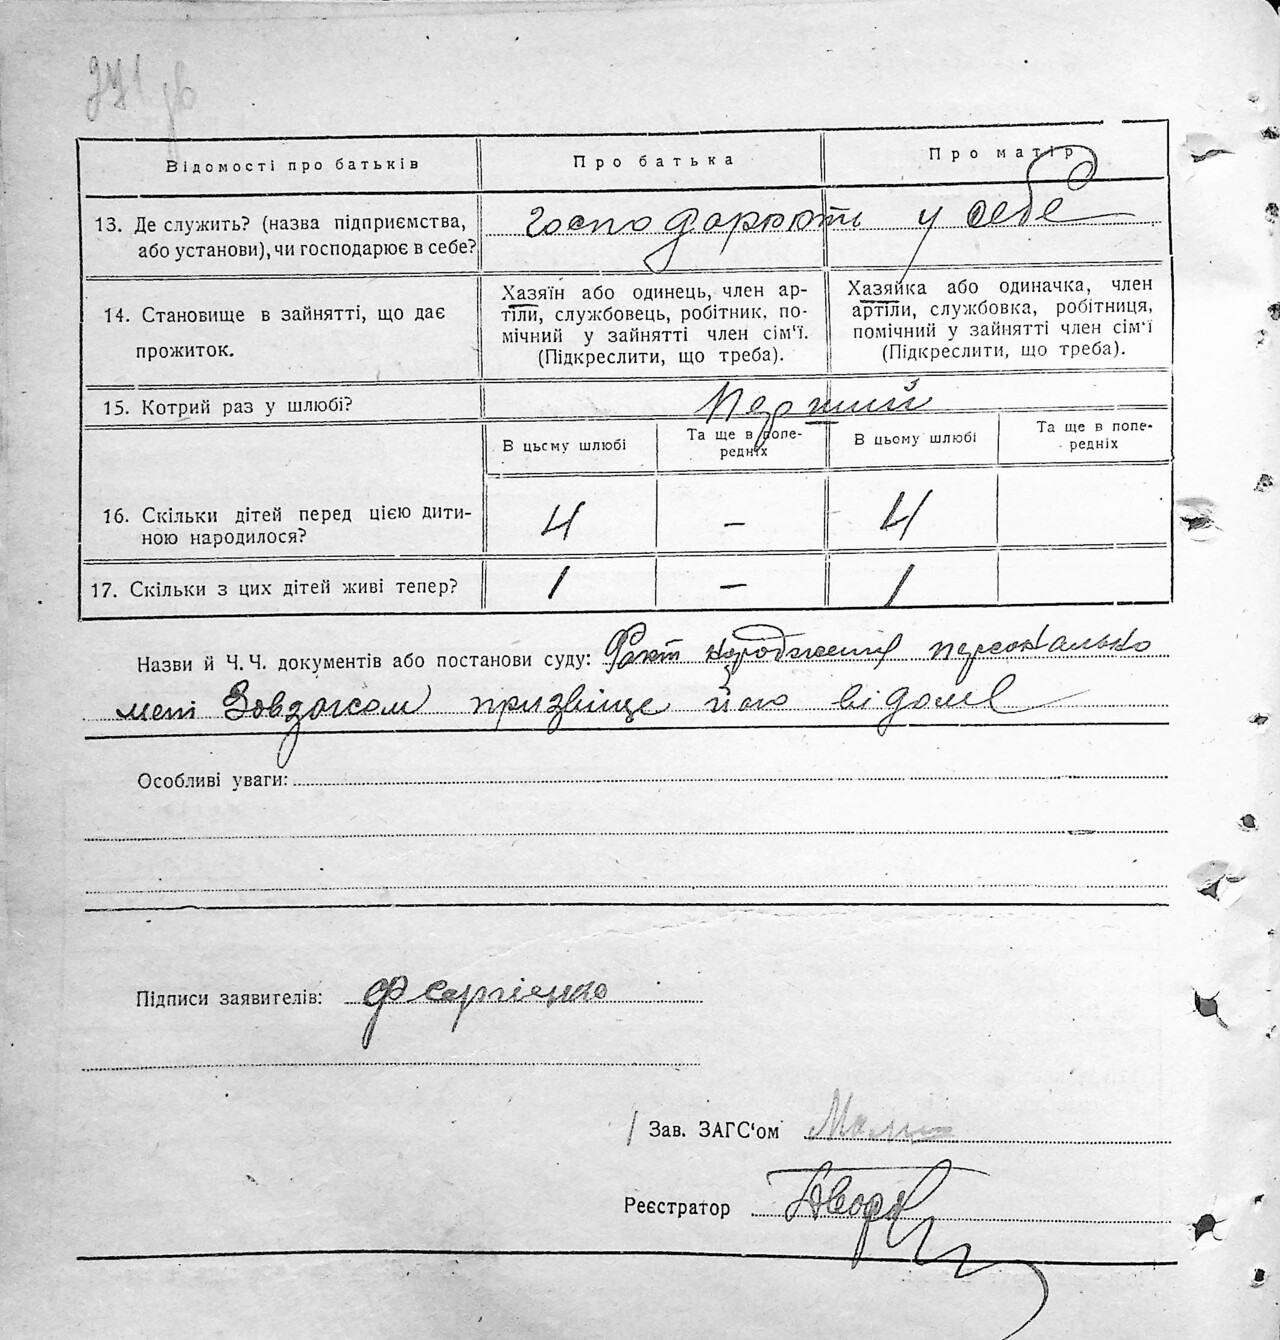 271 зв
Відомості про батьків
Про батька
Про матір
13. Де служить? (назва підприємства,
або установи), чи господарює в себе?
господарюють у себе
14. Становище в зайнятті, що дає
прожиток.
Хазяїн або одинець, член ар-
тіли, службовець, робітник, по-
мічний у зайнятті член сім'ї.
(Підкреслити, що треба).
Хазяйка або одиначка, член
артіли, службовка, робітниця,
помічний у зайнятті член сім'ї
(Підкреслити, що треба).
15. Котрий раз у шлюбі?
Перший
В цьому шлюбі
Та ще в попе-
редніх
В цьому шлюбі
Та ще в попе-
редніх
16. Скільки дітей перед цією дити-
ною народилося?
4 – 4
17. Скільки з цих дітей живі тепер?
1 – 1
Назви й Ч. Ч. документів або постанови суду: Факт народження персонально
мені Завзагсом призвіще його відоме
Особливі уваги:
Підписи заявителів: Ф Сергієнко
Зав. ЗАГС'ом
Реєстратор